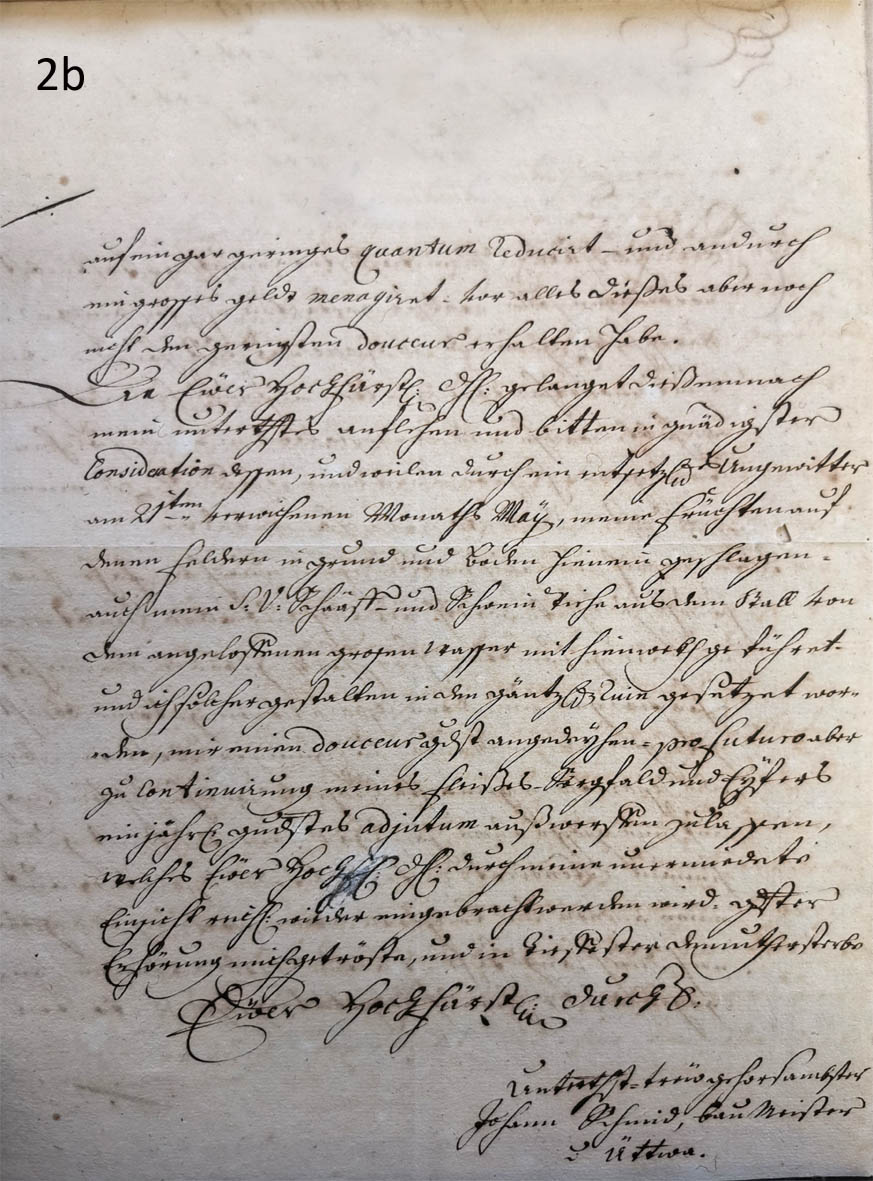 2b
auf ein gar geringes quantum reducirt - und andurch
ein grosses geldt menagiret - vor alles dießes aber noch
nicht den geringsten douceur erhalten habe.
An Eüer Hochfürstl: Dhl: gelanget dießemnach
mein unterthstes anflehen und bitten in gnädigster
Consideration dessen, und weilen durch ein entsetzl: Ungewitter
am 21ten verwichenen Monaths Maÿ, meine früchten auf
denen feldern in grund und Boden hienein geschlagen -
auch mein S: V: Schaaff- und Schwein Viehe aus dem Stall von
dem angeloffenen grosen Wasser mit hienweckh geführet -
und ich solcher gestalten in den gäntzl: ruin gesetzet wor-
den, mir einen douceur gdst angedeyhen - pro futuro aber
zu Continuirung meines fleißes - Sorgfald und Eyfers
ein jährl: gnädstes adjutum außwerffen zu lassen,
welches Eüer Hochfl: Dhl: durch meine unermüdete
Einsicht reichl: wieder eingebracht werden wird. gdster
Erhörung mich getröste, und in tieffester demuth ersterbe
Eüer Hochfürstli: Durchl:
Unterthst-treü gehorsambster
Johann Schmid, bau Meister
Üttwa.